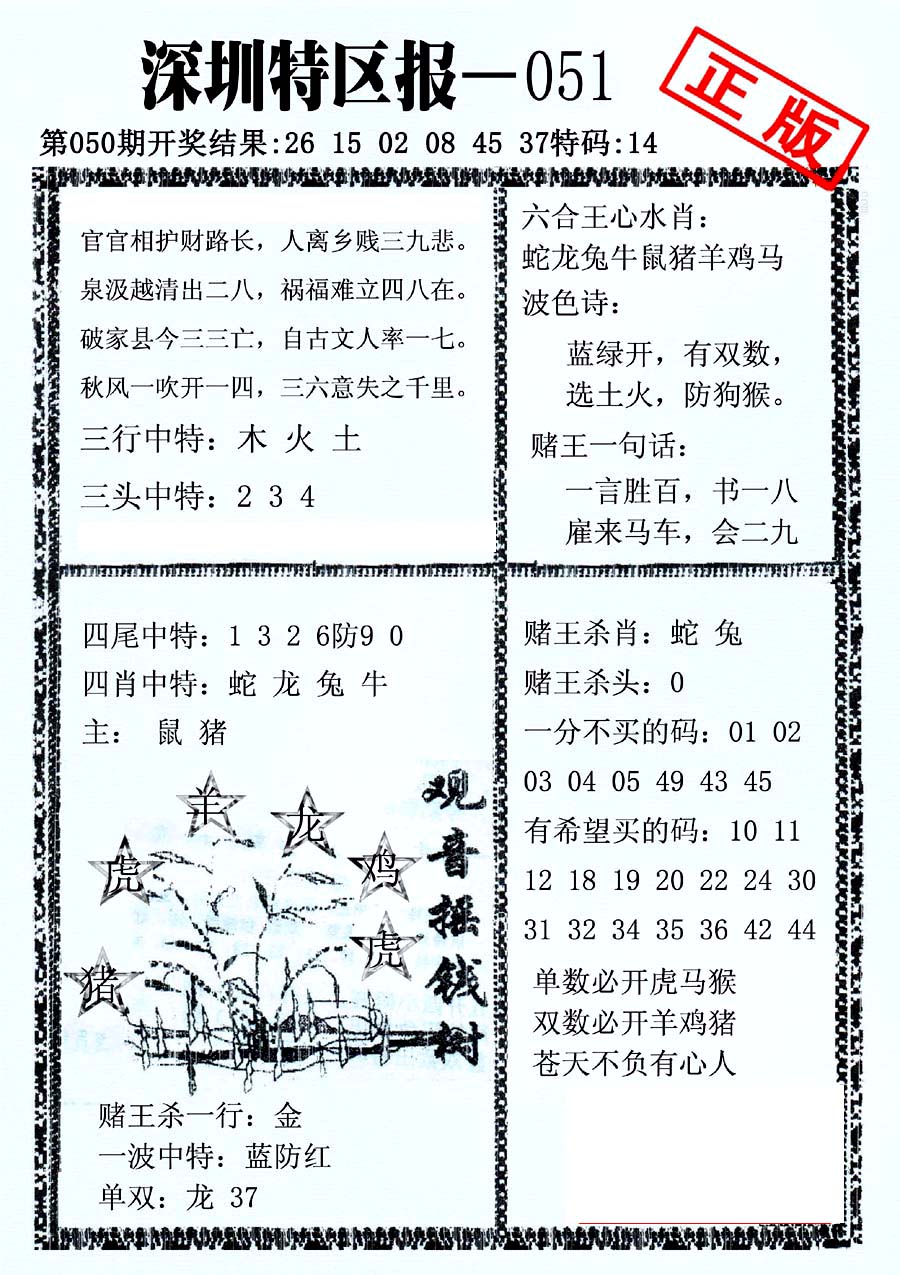 深圳特区报—051
正版
第050期开奖结果:26 15 02 08 45 37特码:14
官官相护财路长，人离乡贱三九悲。
泉汲越清出二八，祸福难立四八在。
破家县今三三亡，自古文人率一七。
秋风一吹开一四，三六意失之千里。
三行中特：木 火 土
三头中特：2 3 4
六合王心水肖：
蛇龙兔牛鼠猪羊鸡马
波色诗：
蓝绿开，有双数，
选土火，防狗猴。
赌王一句话：
一言胜百，书一八
雇来马车，会二九
四尾中特：1 3 2 6防9 0
四肖中特：蛇 龙 兔 牛
主： 鼠 猪
羊
龙
虎
鸡
虎
猪
观音摇钱树
赌王杀一行：金
一波中特：蓝防红
单双：龙 37
赌王杀肖：蛇 兔
赌王杀头：0
一分不买的码：01 02
03 04 05 49 43 45
有希望买的码：10 11
12 18 19 20 22 24 30
31 32 34 35 36 42 44
单数必开虎马猴
双数必开羊鸡猪
苍天不负有心人